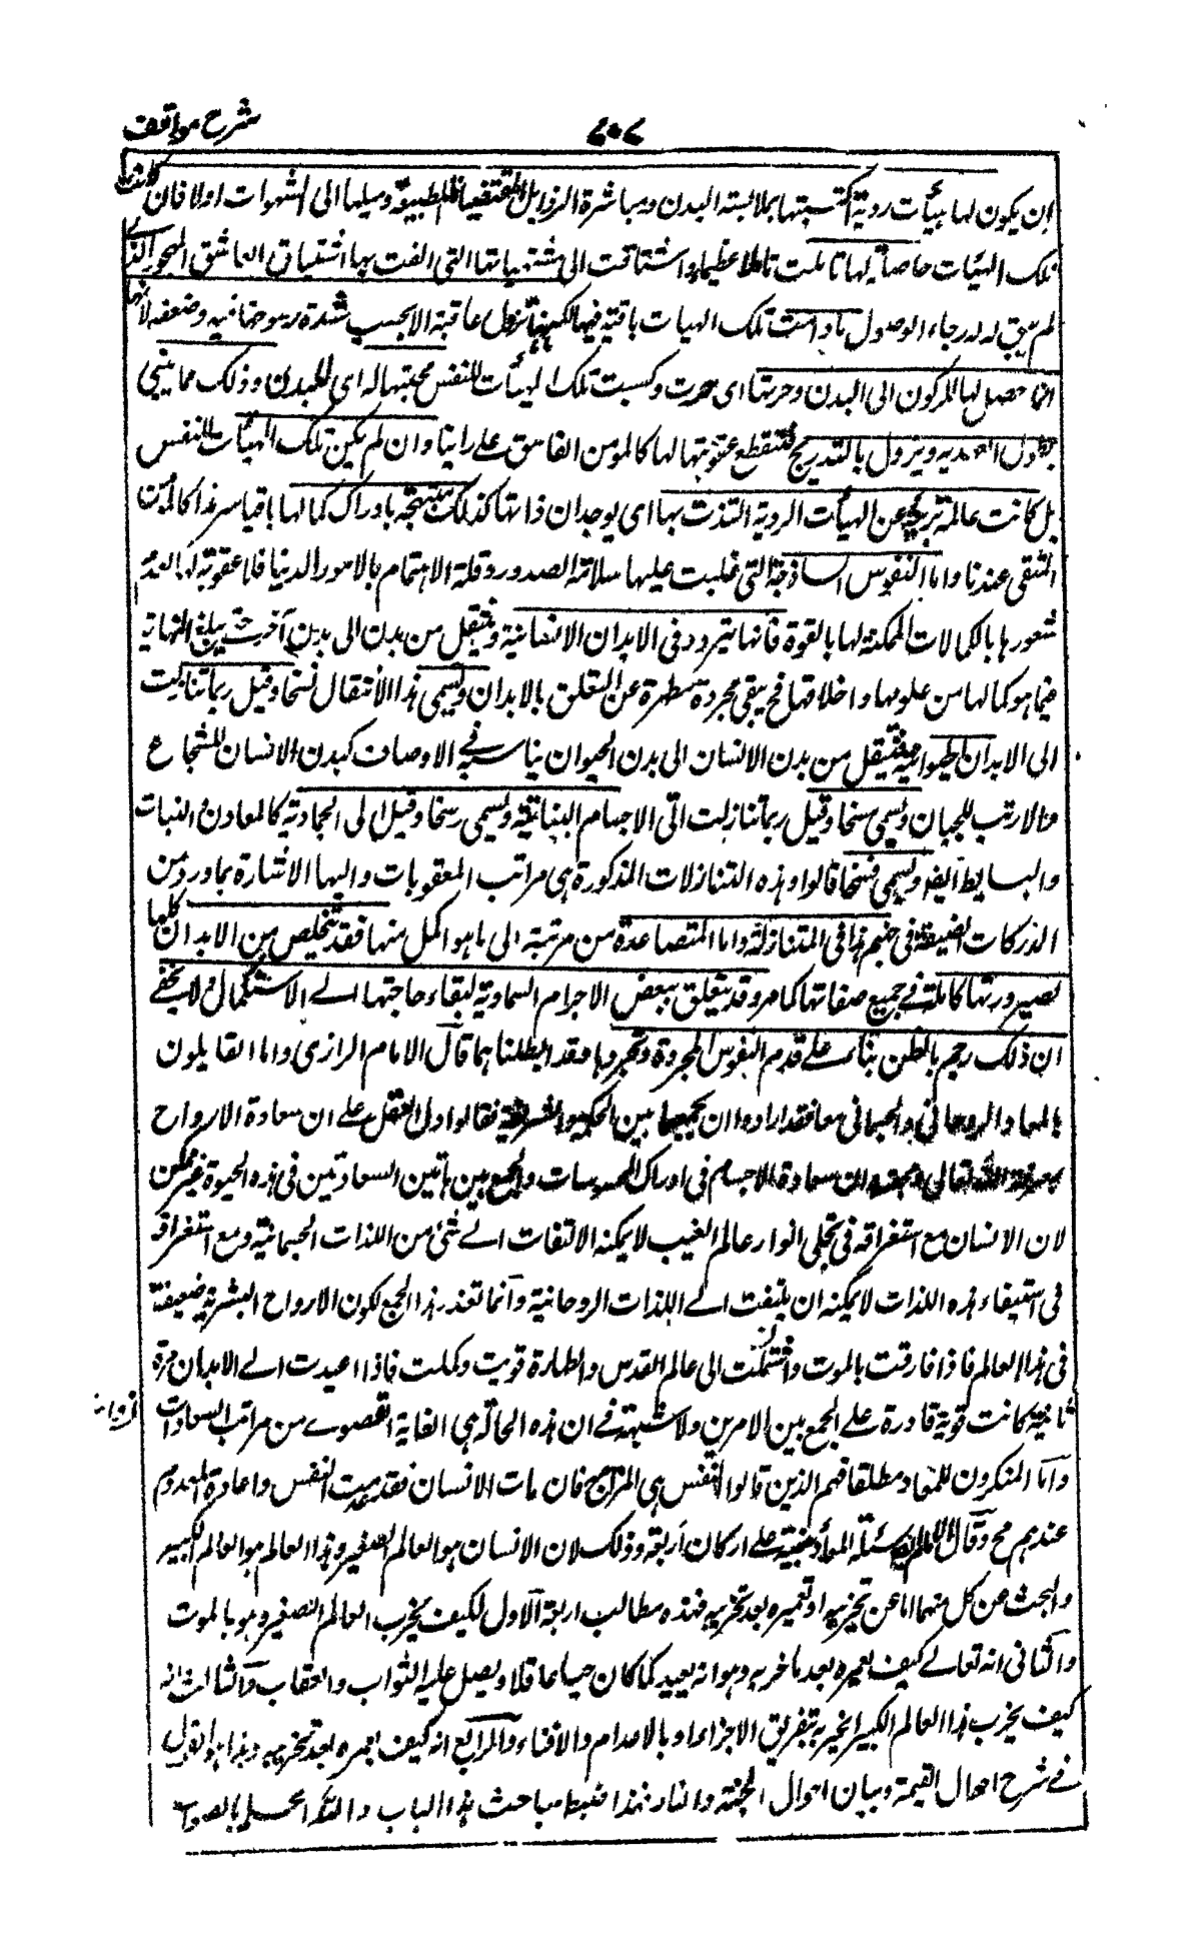 شرح مواقف
٧٠٨
ان يكون لها هيأت ردية اكتسبتها بملابسة البدن ومباشرة الرذايل المقتضيات الطبيعة وميلها الى الشهوات اولا فان كانت
تلك الهيئات حاصلة لها تألمت تألما عظيما واشتاقت الى مشتهياتها التى الفت بها اشتياق العاشق المهجور الذى
لم يبق له رجاء الوصول مادامت تلك الهيات باقية فيها لكنها تزول عاقبة الامر بحسب شدة رسوخها فيه وضعفه لانها
انما حصل لها للركون الى البدن وجرتها اى جرت وكسبت تلك الهيأت للنفس محبتها له اى للبدن وذلك مما ينسى
بطول العهد به ويزول بالتدريج فتنقطع عقوبتها لها كالمومن الفاسق على راينا وان لم يكن تلك الهيأت للنفس
بل كانت عالمة برية عن الهيأت الردية التذت بها اى بوجدان ذاتها كذلك مبتهجة بادراك كمالها باقيا سرمدا كالمومن
المتقى عندنا واما النفوس الساذجة التى غلبت عليها سلامة الصدور وقلة الاهتمام بالامور الدنيا فلا عقوبة لها لعدم
شعورها بالكمالات الممكنة لها بالقوة فانها تتردد فى الابدان الانسانية وتنتقل من بدن الى بدن آخر حتى يبلغ النهاية
فيما هو كمالها من علومها واخلاقها فح يبقى مجردة مطهرة عن التعلق بالابدان ويسمى هذا الانتقال نسخا وقيل ربما تنازلت
الى الابدان الحيوانية فينتقل من بدن الانسان الى بدن الحيوان يناسبه فى الاوصاف كبدن الانسان للشجاع
والارنب للجبان ويسمى مسخا وقيل ربما تنازلت الى الاجسام النباتية ويسمى رسخا وقيل الى الجمادية كالمعادن والنبات
والبسايط ايضا ويسمى فسخا قالوا وهذه التنازلات المذكورة هى مراتب العقوبات واليها الاشارة بما ورد من
الدركات الضيقة فى جهنم هذا فى المتنازلة واما المتصاعدة من مرتبة الى ما هو اكمل منها فقد تتخلص من الابدان كلها
لصيرورتها كاملة فى جميع صفاتها كما مر وقد يتعلق ببعض الاجرام السماوية لبقاء حاجتها الى الاستكمال ولا يخفى
ان ذلك رجم بالظن بناء على قدم النفوس المجردة وتجردها وقد ابطلناهما قال الامام الرازى واما القايلون
بالمعاد الروحانى والجسمانى معا فقد ارادوا ان يجمعوا بين الحكمة والشريعة فقالوا دل العقل على ان سعادة الارواح
بمعرفة الله تعالى ومحبته وان سعادة الاجسام فى ادراك المحسوسات والجمع بين هاتين السعادتين فى هذه الحيوة غير ممكن
لان الانسان مع استغراقه فى تجلى انوار عالم الغيب لا يمكنه الالتفات الى شئ من اللذات الجسمانية ومع استغراقه
فى استيفاء هذه اللذات لا يمكنه ان يلتفت الى اللذات الروحانية وانما تعذر هذا الجمع لكون الارواح البشرية ضعيفة
فى هذا العالم فاذا فارقت بالموت واستمدت الى عالم القدس والطهارة قويت وكملت فاذا اعيدت الى الابدان مرة
ثانية كانت قوية قادرة على الجمع بين الامرين ولا شبهة فى ان هذه الحالة هى الغاية القصوى من مراتب السعادات
واما المنكرون للمعاد مطلقا فهم الذين قالوا النفس هى المزاج فان مات الانسان فقد عدمت النفس واعادة المعدوم
عندهم مح وقال الامام مسئلة المعاد مبنية على اركان اربعة وذلك لان الانسان هو العالم الصغير وهذا العالم هو العالم الكبير
والبحث عن كل منهما اما عن تخريبه او تعميره بعد تخريبه فهذه مطالب اربعة الاول كيف يخرب العالم الصغير وهو بالموت
والثانى انه تعالى كيف يعمره بعد ما خربه وهو انه يعيده كما كان حيا عاقلا ويصل عليه الثواب والعقاب والثالث انه
كيف يخرب هذا العالم الكبير ايخربه بتفريق الاجزاء او بالاعدام والافناء والرابع انه كيف يعمره بعد تخريبه وهذا هو القول
فى شرح احوال القيمة وبيان احوال الجنة والنار فهذا ضبط مباحث هذا الباب والله اعلم بالصواب